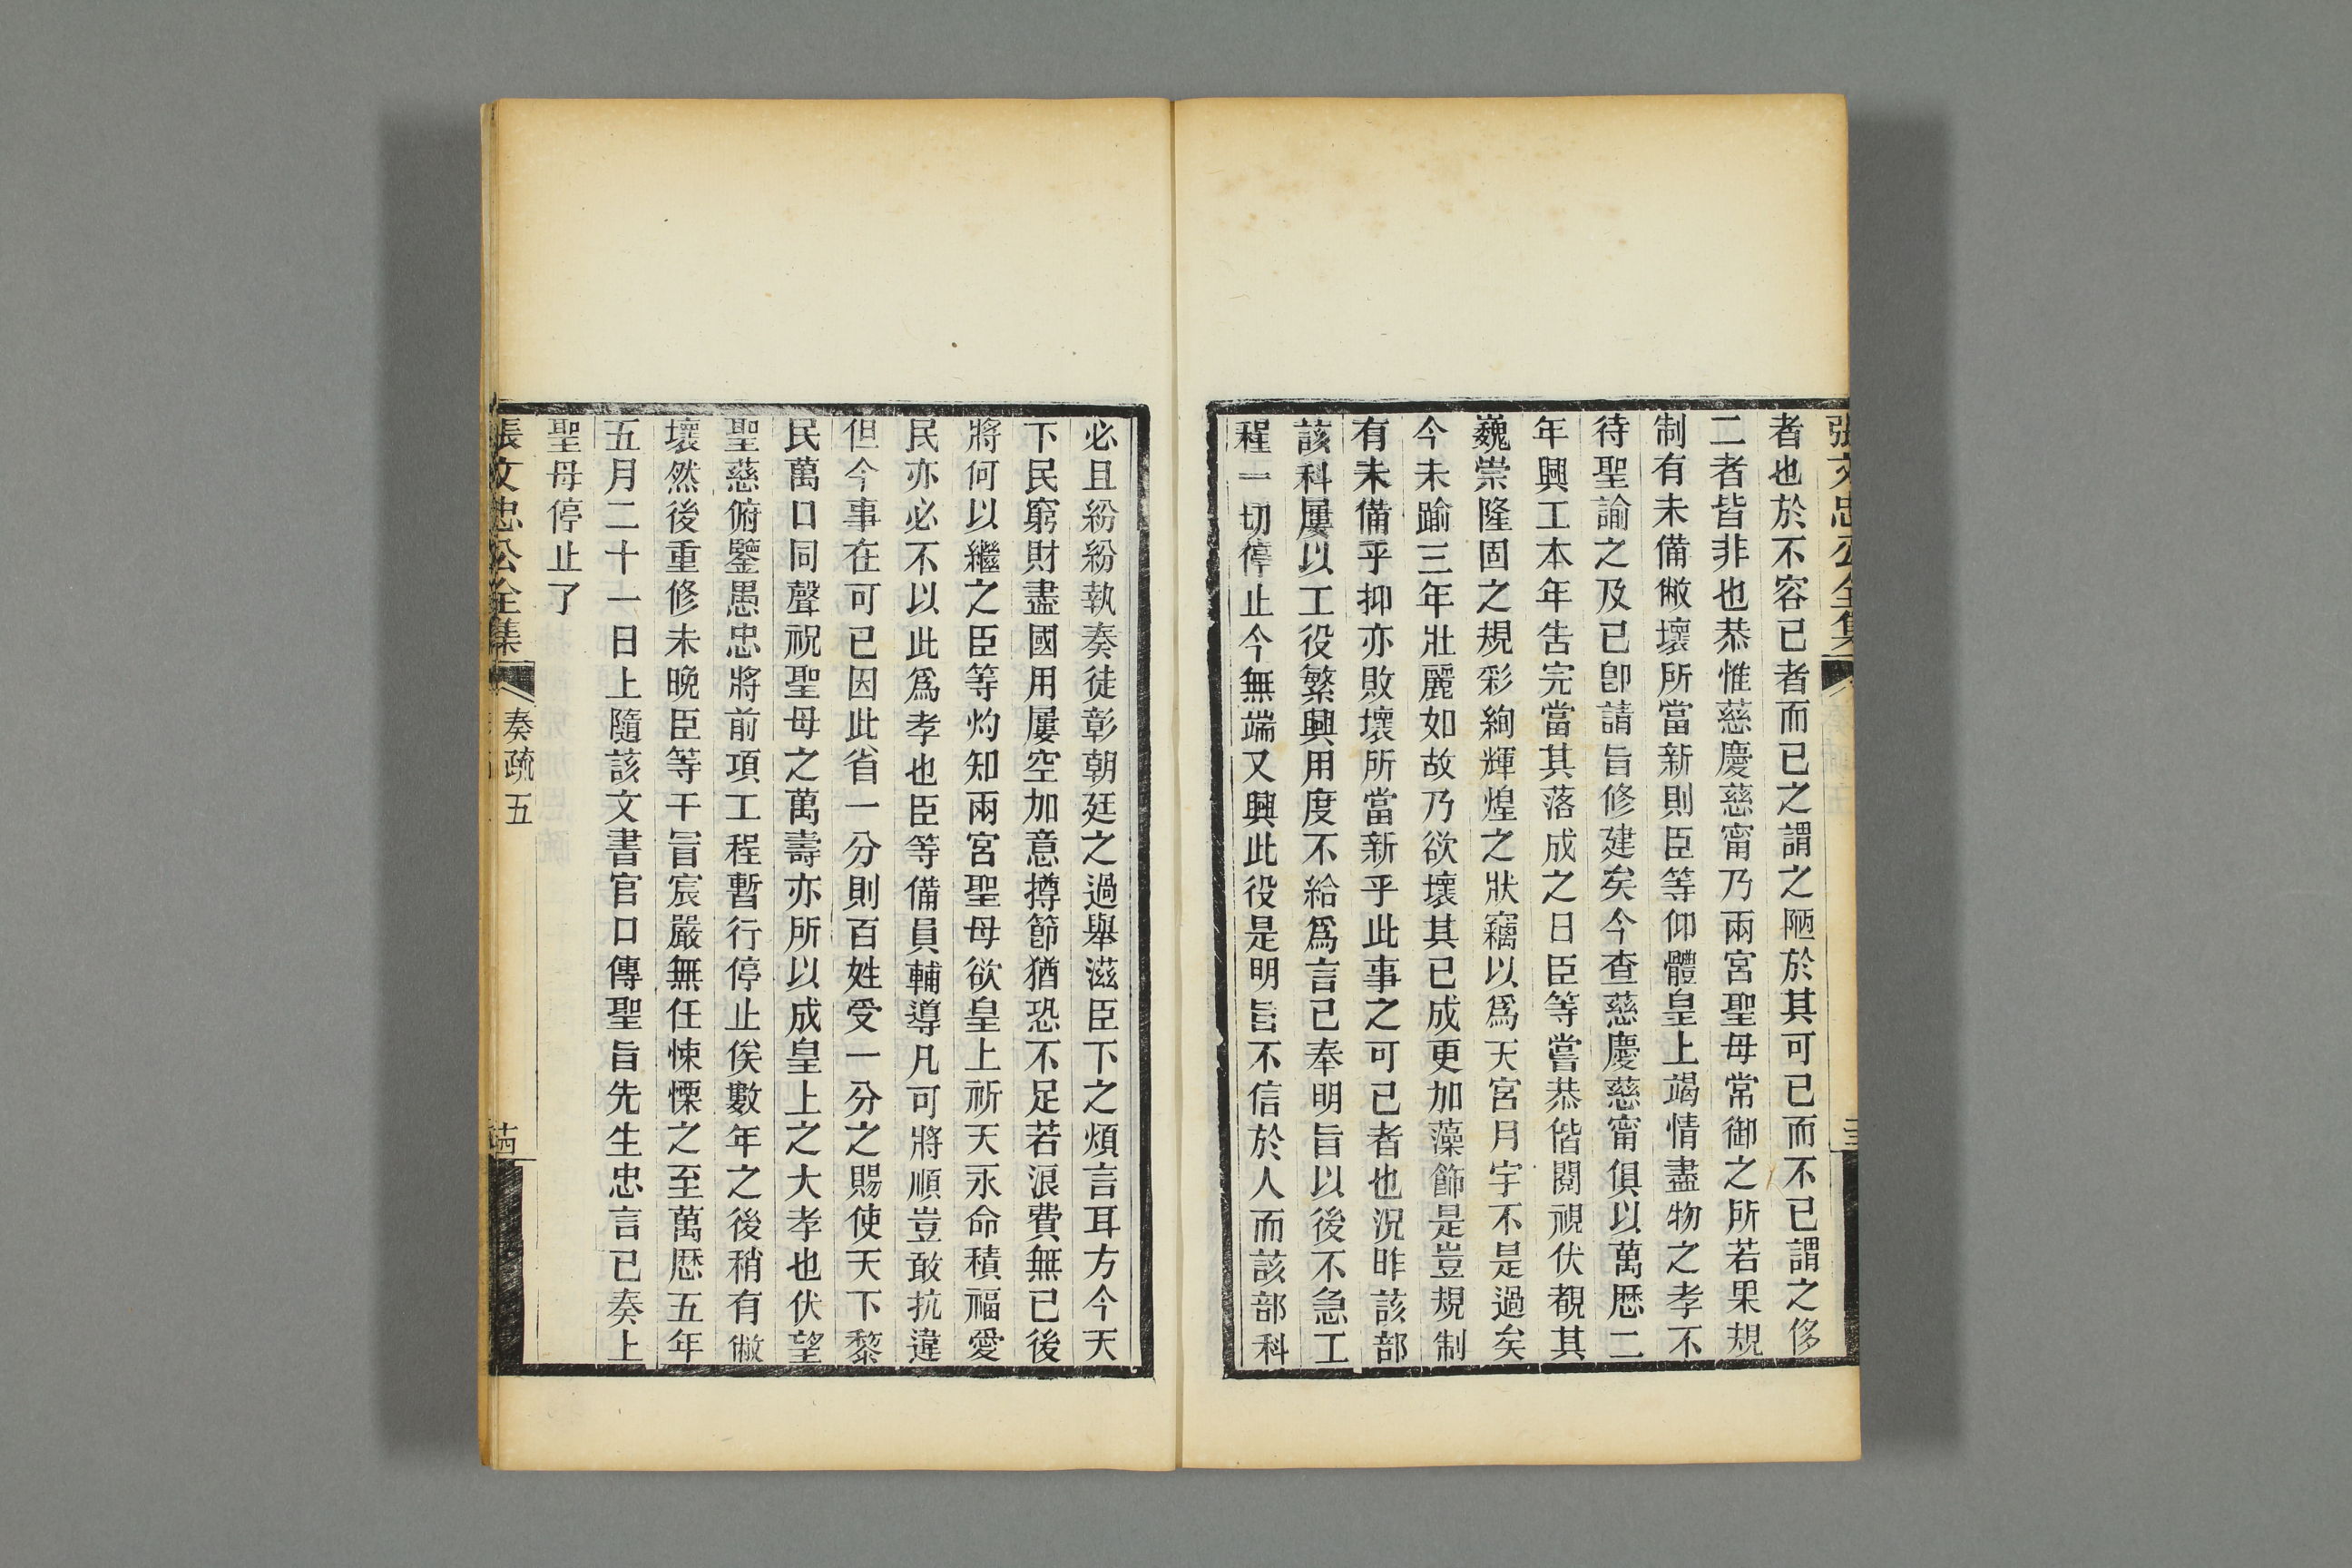 張文忠公全集
者也於不容已者而已之謂之陋於其可已而不已謂之侈
二者皆非也恭惟慈慶慈甯乃兩宮聖母常御之所若果規
制有未備敝壞所當新則臣等仰體皇上竭情盡物之孝不
待聖諭之及已卽請旨修建矣今查慈慶慈甯俱以萬歷二
年興工本年告完當其落成之日臣等嘗恭偕閱視伏覩其
巍崇隆固之規彩絢輝煌之狀竊以爲天宮月宇不是過矣
今未踰三年壯麗如故乃欲壞其已成更加藻飾是豈規制
有未備乎抑亦敗壞所當新乎此事之可已者也況昨該部
該科屢以工役繁興用度不給爲言已奉明旨以後不急工
程一切停止今無端又興此役是明旨不信於人而該部科
必且紛紛執奏徒彰朝廷之過舉滋臣下之煩言耳方今天
下民窮財盡國用屢空加意撙節猶恐不足若浪費無已後
將何以繼之臣等灼知兩宮聖母欲皇上祈天永命積福愛
民亦必不以此爲孝也臣等備員輔導凡可將順豈敢抗違
但今事在可已因此省一分則百姓受一分之賜使天下黎
民萬口同聲祝聖母之萬壽亦所以成皇上之大孝也伏望
聖慈俯鑒愚忠將前項工程暫行停止俟數年之後稍有敝
壞然後重修未晚臣等干冒宸嚴無任悚慄之至萬歷五年
五月二十一日上隨該文書官口傳聖旨先生忠言已奏上
聖母停止了
張文忠公全集 奏疏五